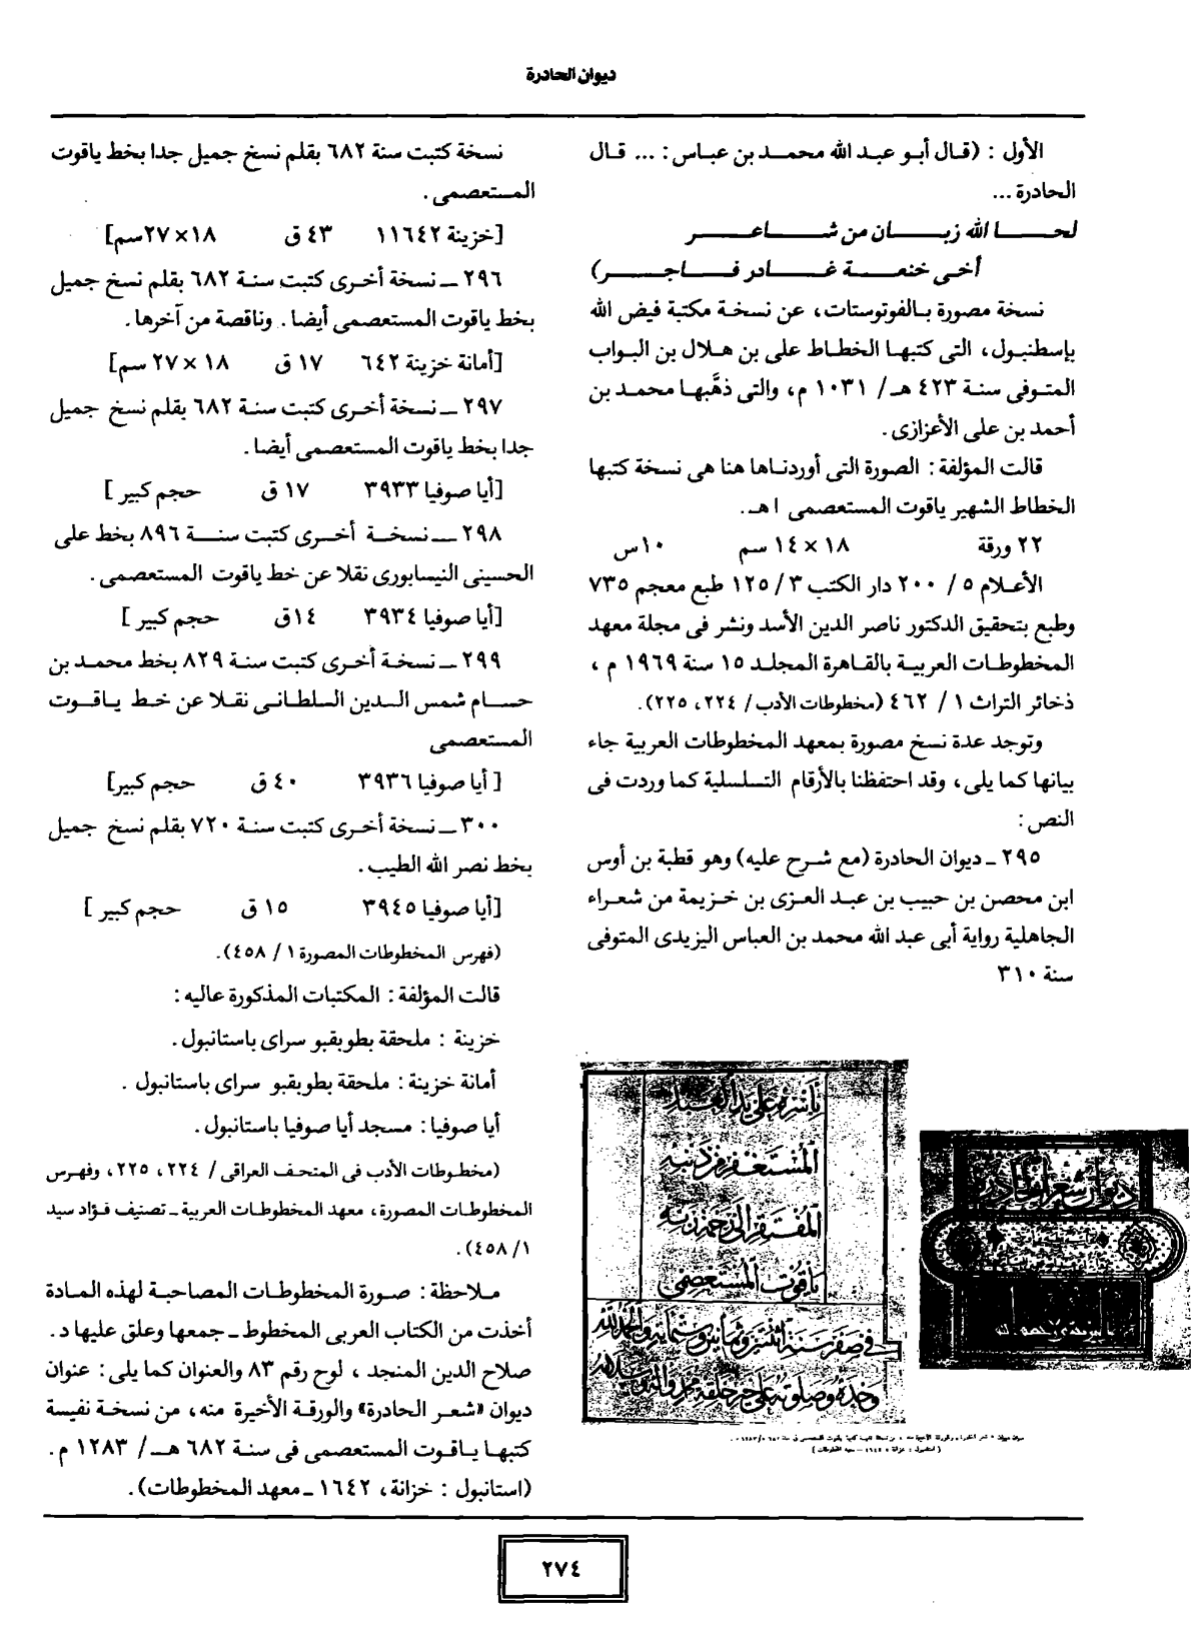 ديوان الحادرة
الأول : (قال أبو عبد الله محمد بن عباس : ... قال
الحادرة ...
لحا الله زبان من شاعر
أخى خنعة غادر فاجر)
نسخة مصورة بالفوتوستات، عن نسخة مكتبة فيض الله
بإسطنبول، التى كتبها الخطاط على بن هلال بن البواب
المتوفى سنة ٤٢٣ هـ/ ١٠٣١ م، والتى ذهَّبها محمد بن
أحمد بن على الأعزازى.
قالت المؤلفة : الصورة التى أوردناها هنا هى نسخة كتبها
الخطاط الشهير ياقوت المستعصمى اهـ.
٢٢ ورقة ١٨ × ١٤ سم ١٠س
الأعلام ٥ / ٢٠٠ دار الكتب ٣ / ١٢٥ طبع معجم ٧٣٥
وطبع بتحقيق الدكتور ناصر الدين الأسد ونشر فى مجلة معهد
المخطوطات العربية بالقاهرة المجلد ١٥ سنة ١٩٦٩ م ،
ذخائر التراث ١ / ٤٦٢ (مخطوطات الأدب / ٢٢٤، ٢٢٥).
وتوجد عدة نسخ مصورة بمعهد المخطوطات العربية جاء
بيانها كما يلى، وقد احتفظنا بالأرقام التسلسلية كما وردت فى
النص :
٢٩٥ ـ ديوان الحادرة (مع شرح عليه) وهو قطبة بن أوس
ابن محصن بن حبيب بن عبد العزى بن خزيمة من شعراء
الجاهلية رواية أبى عبد الله محمد بن العباس اليزيدى المتوفى
سنة ٣١٠
ديوان شعر الحادرة
ياقوت المستعصمى
فى صفر سنة اثنتين وثمانين وستمائة والحمد لله
نسخة كتبت سنة ٦٨٢ بقلم نسخ جميل جدا بخط ياقوت
المستعصمى.
[خزينة ١١٦٤٢ ٤٣ ق ١٨ × ٢٧سم]
٢٩٦ ـ نسخة أخرى كتبت سنة ٦٨٢ بقلم نسخ جميل
بخط ياقوت المستعصمى أيضا. وناقصة من آخرها.
[أمانة خزينة ٦٤٢ ١٧ ق ١٨ × ٢٧ سم]
٢٩٧ ـ نسخة أخرى كتبت سنة ٦٨٢ بقلم نسخ جميل
جدا بخط ياقوت المستعصمى أيضا.
[أيا صوفيا ٣٩٣٣ ١٧ ق حجم كبير ]
٢٩٨ ـ نسخة أخرى كتبت سنة ٨٩٦ بخط على
الحسينى النيسابورى نقلا عن خط ياقوت المستعصمى.
[أيا صوفيا ٣٩٣٤ ١٤ق حجم كبير ]
٢٩٩ ـ نسخة أخرى كتبت سنة ٨٢٩ بخط محمد بن
حسام شمس الدين السلطانى نقلا عن خط ياقوت
المستعصمى
[ أيا صوفيا ٣٩٣٦ ٤٠ ق حجم كبير]
٣٠٠ ـ نسخة أخرى كتبت سنة ٧٢٠ بقلم نسخ جميل
بخط نصر الله الطيب.
[أيا صوفيا ٣٩٤٥ ١٥ ق حجم كبير ]
(فهرس المخطوطات المصورة ١ / ٤٥٨).
قالت المؤلفة : المكتبات المذكورة عاليه :
خزينة : ملحقة بطوبقبو سراى باستانبول.
أمانة خزينة : ملحقة بطوبقبو سراى باستانبول .
أيا صوفيا : مسجد أيا صوفيا باستانبول.
(مخطوطات الأدب فى المتحف العراقى / ٢٢٤، ٢٢٥، وفهرس
المخطوطات المصورة، معهد المخطوطات العربية ـ تصنيف فؤاد سيد
١/ ٤٥٨).
ملاحظة : صورة المخطوطات المصاحبة لهذه المادة
أخذت من الكتاب العربى المخطوط ـ جمعها وعلق عليها د.
صلاح الدين المنجد ، لوح رقم ٨٣ والعنوان كما يلى : عنوان
ديوان «شعر الحادرة» والورقة الأخيرة منه، من نسخة نفيسة
كتبها ياقوت المستعصمى فى سنة ٦٨٢ هـ/ ١٢٨٣ م.
(استانبول : خزانة، ١٦٤٢ ـ معهد المخطوطات).
٢٧٤